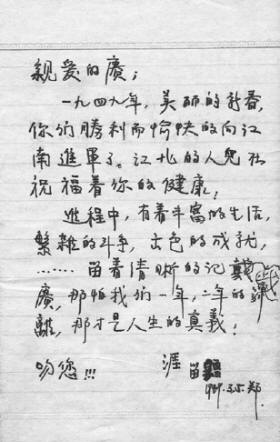 親愛的廣；
一九四九年，美丽的新春，
你们勝利而愉快的向江
南進軍了。江北的人兒在
祝福着你的健康；
進程中，有着丰富的生活，
繁雜的斗争，出色的成就，
……留着清晰的记
廣，那怕我们一年，二年的
離，那才是人生的真義！
吻您!!! 涯